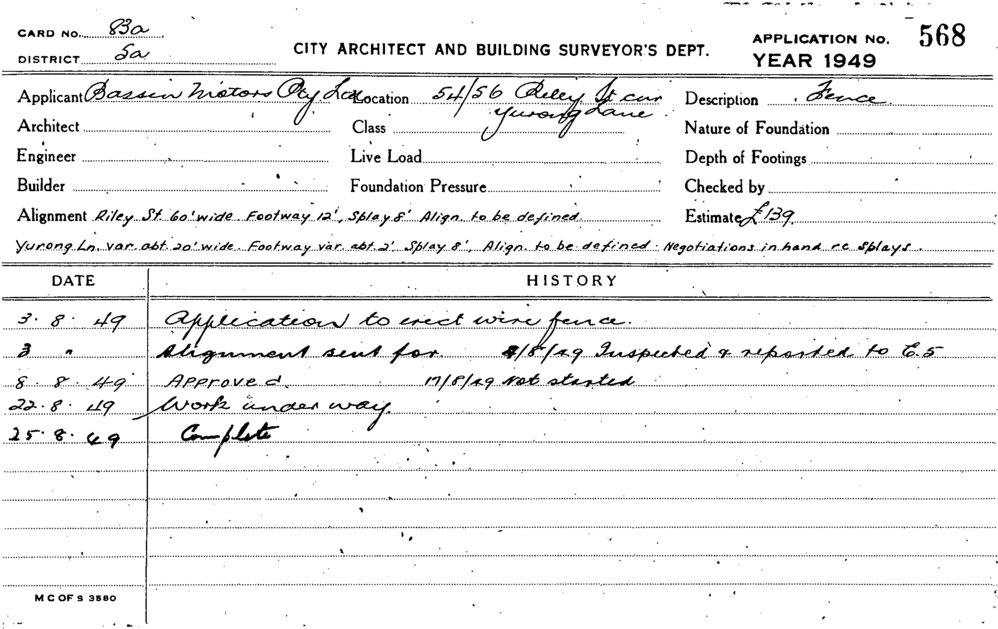 CARD NO. 83a
DISTRICT 5a
CITY ARCHITECT AND BUILDING SURVEYOR'S DEPT.
APPLICATION NO. 568
YEAR 1949
Applicant Bassin Motors Pty Ltd Location 54/56 Riley St cnr Yurong Lane Description Fence
Architect Class Nature of Foundation
Engineer Live Load Depth of Footings
Builder Foundation Pressure Checked by
Alignment Riley St 60' wide Footway 12', Splay 8' Align to be defined Estimate £139
Yurong Ln. var. abt 20' wide. Footway var. abt 2' Splay 8', Align. to be defined. Negotiations in hand re Splays.
DATE HISTORY
3. 8. 49 Application to erect wire fence.
3 " Alignment sent for. 4/8/49 Inspected & reported to C.S
8. 8. 49 Approved. 17/8/49 Not started
22. 8. 49 Work under way
25. 8. 49 Complete
M C OF S 3580